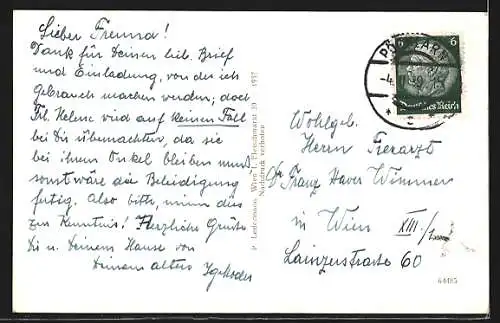 Lieber Freund!
Dank für Deinen lieb. Brief
und Einladung, von der ich
Gebrauch machen werde; doch
Frl. Helene wird auf keinen Fall
bei Dir übernachten, da sie
bei ihrem Onkel bleiben muß
sonst wäre die Beleidigung
fertig. Also bitte, nimm dies
zur Kenntnis! Herzliche Grüße
Dir u. Deinem Hause von
Deinem alten
P. Ledermann, Wien I, Fleischmarkt 20 1937
Nachdruck verboten
6
6
Deutsches Reich
PÖCHLARN
Wohlgeb.
Herrn Tierarzt
Dr. Franz Xaver Wimmer
in Wien XIII/
Lainzerstrasse 60